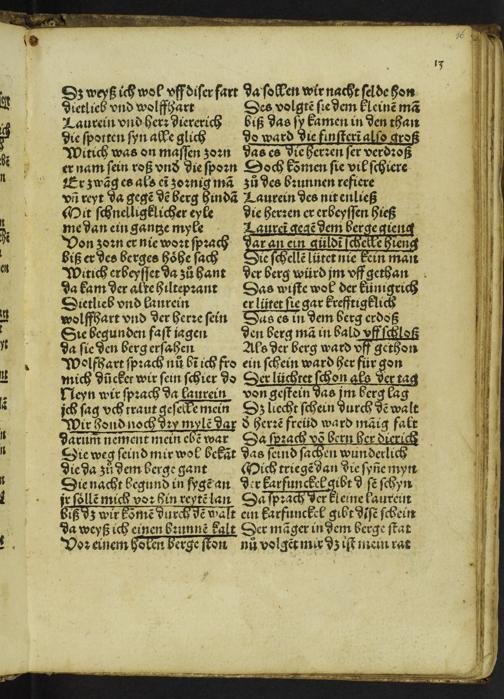 13
Dz weyß ich wol vff diser fart
dietlieb vnd wolffhart
Laurein vnd herr diererich
die spotten syn alle glich
Witich was on massen zorn
er nam sein roß vnd die sporn
Er zwãg es als eĩ zornig mã
vñ reyt da gegẽ dẽ berg hindã
Mit schnelligklicher eyle
me dan ein gantze myle
Von zorn er nie wort sprach
biß er des berges höhe sach
Witich erbeysset da zů hant
da kam der alte hilteprant
Dietlieb vnd laurein
wolffhart vnd der herre sein
Sie begunden fast jagen
da sie den berg ersahen
Wolfhart sprach nů bĩ ich fro
mich důcket wir sein schier do
Neyn wir sprach da laurein
jch sag vch traut geselle mein
Wir hond noch dry mylẽ dar
darům nement mein ebẽ war
Die weg seind mir wol bekãt
die da zů dem berge gant
Die nacht begund in fygẽ an
jr söllẽ mich vor hin reytẽ lan
biß dz wir kõmẽ durch dẽ walt
da weyß ich einen brunnẽ kalt
Vor einem holen berge ston
da sollen wir nacht selde hon
Des volgtẽ sie dem kleinẽ mã
biß das sy kamen in den than
do ward die finsteri also groß
das es die herren ser verdroß
Doch kõmen sie vil schiere
zů des brunnen refiere
Laurein des nit enließ
die herren er erbeyssen hieß
Laurei gegẽ dem berge gieng
dar an ein güldĩ schelle hieng
Die schellẽ lütet nie kein man
der berg würd jm vff gethan
Das wiste wol der künigrich
er lütet sie gar krefftigklich
Das es in dem berg erdoß
den berg mã in bald vff schloß
Als der berg ward vff gethon
ein schein ward her für gon
Der lüchtet schon als der tag
von gestein das jm berg lag
Dz liecht schein durch dẽ walt
d herrẽ freüd ward mãig falt
Da sprach võ bern her dierich
das seind sachen wunderlich
Mich triegẽ dan die syñe myn
der karfunckel gibt dsẽ schyn
Da sprach der kleine laurein
ein karfunckel gibt disẽ schein
Der mãger in dem berge stat
nů volgẽt mir dz ist mein rat